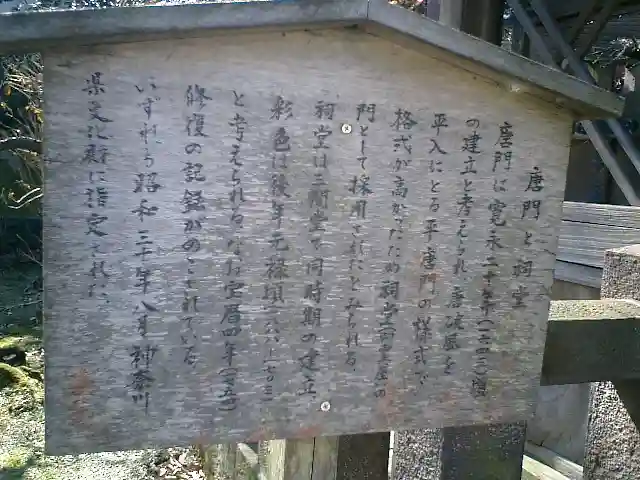 唐門と祠堂
唐門は寛永二十年(一六四三)頃
の建立と考えられ唐破風を
平入にとる平唐門の様式で
格式が高かったため祠堂の
門として採用されたとみられる。
祠堂は三間堂で同時期の建立、
彩色は後年元禄頃
と考えられる。なお宝暦四年(一七五四)
修復の記録がのこされている。
いずれも昭和三十年八月神奈川
県文化財に指定された。